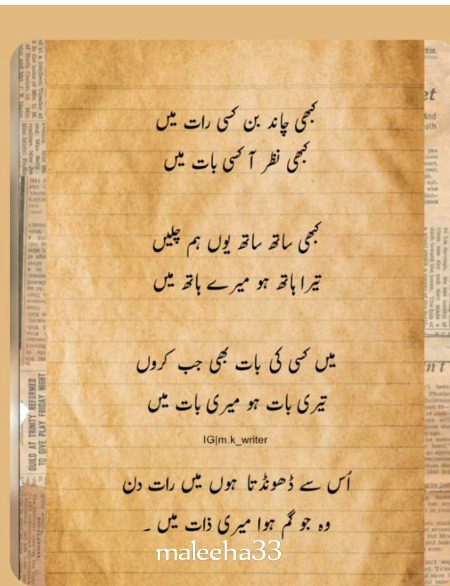 کبھی چاند بن کسی رات میں
کبھی نظر آ کسی بات میں
کبھی ساتھ ساتھ یوں ہم چلیں
تیرا ہاتھ ہو میرے ہاتھ میں
میں کسی کی بات بھی جب کروں
تیری بات ہو میری بات میں
IG|m.k_writer
اُس سے ڈھونڈتا ہوں میں رات دن
وہ جو گم ہوا میری ذات میں ۔
maleeha33
GUILD AT TRINITY REFORMED
TO GIVE PLAY FRIDAY NIGHT